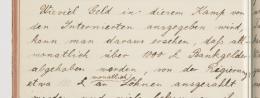 Wieviel Geld in diesem Kamp von
den Internierten ausgegeben wird,
kann man daraus ersehen, daß all-
monatlich über 1000 £ Bankgelder
abgehoben werden, von der Regierung
monatlich
etwa £ an Löhnen ausgezahlt